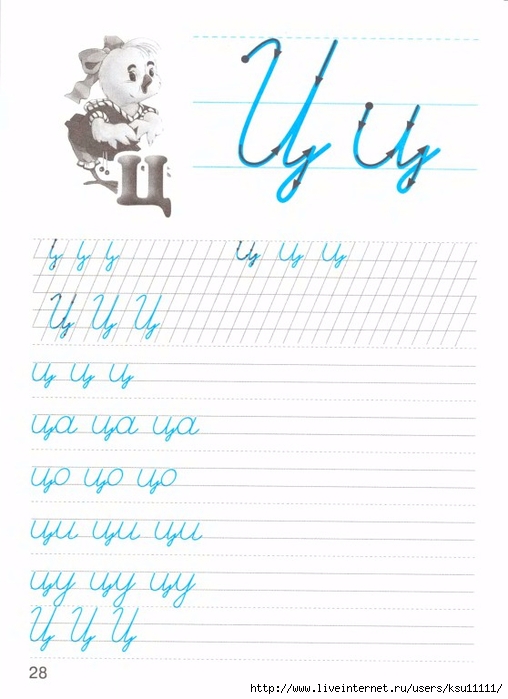 Ц ц
ц
ц ц ц ц ц ц
Ц Ц Ц
ц ц ц
ца ца ца
цо цо цо
ци ци ци
цу цу цу
Ц Ц Ц
28
http://www.liveinternet.ru/users/ksu11111/